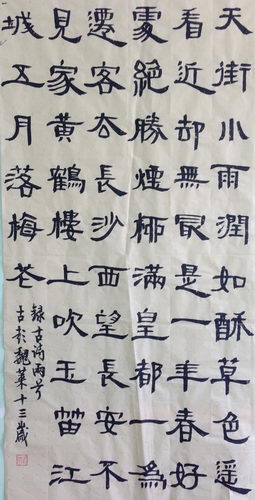 天街小雨潤如酥草色遥
看近却無最是一年春好
處絶勝煙柳滿皇都一為
遷客去長沙西望長安不
見家黃鶴樓上吹玉笛江
城五月落梅花
錄古詩兩首
古彭魏萊十三歲